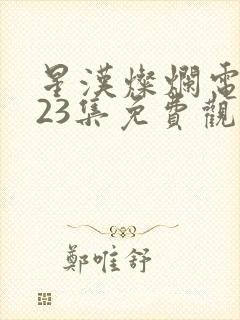 星漢燦爛電
23集免費觀
鄭唯舒